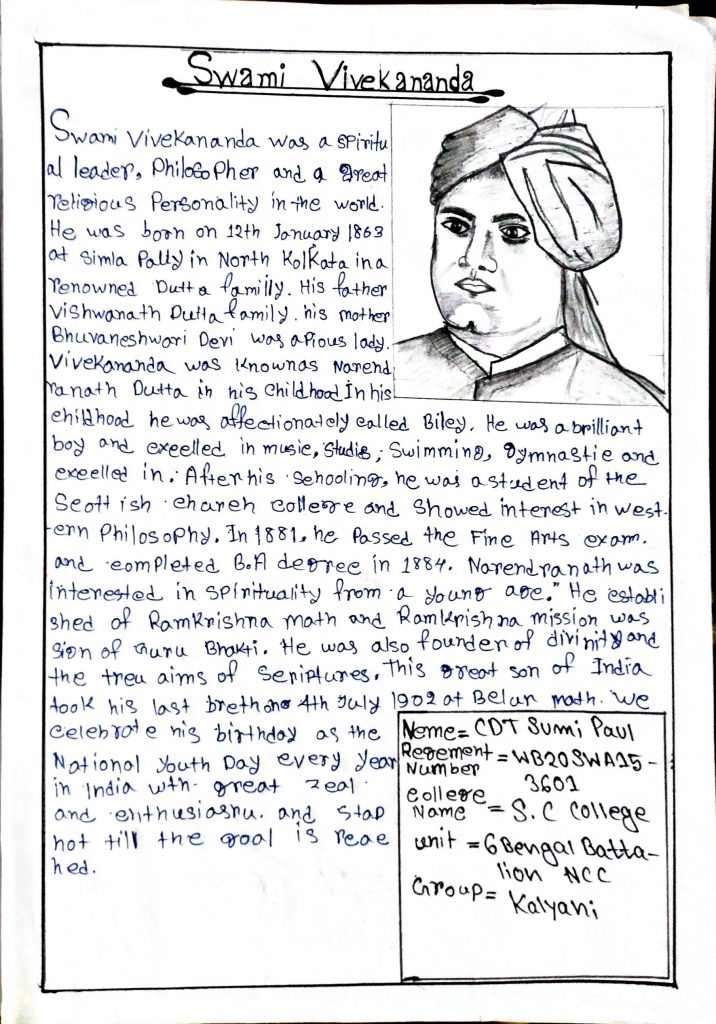 Swami Vivekananda
Swami Vivekananda was a spiritu
al leader, Philosopher and a great
religious Personality in the world.
He was born on 12th January 1863
at Simla Pally in North Kolkata in a
renowned Dutta familly. His father
Vishwanath Dutta family. his mother
Bhuvaneshwari Devi was a pious lady.
Vivekananda was known as Narend
ranath Dutta in his childhood In his
childhood he was affectionately called Biley. He was a brilliant
boy and excelled in music, studis, Swimming, gymnastic and
excelled in. After his schooling, he was a student of the
Scottish chureh college and showed interest in west-
ern Philosophy. In 1881, he Passed the Fine Arts exam.
and completed B.A degree in 1884. Narendranath was
interested in spirituality from a young age." He establi
shed of Ramkrishna math and Ramkrishna mission was
sion of Guru Bhakti. He was also founder of divinity and
the treu aims of Scriptures. This great son of India
took his last brethong 4th July 1902 at Belur math. We
celebrate his birthday as the
National Youth Day every year
in India wth great zeal
and enthusiasnu. and stop
not till the goal is reac
hed.
Neme = CDT Sumi Paul
Regement Number = WB20SWA15-
3601
college Name = S.C College
unit = 6 Bengal Batta-
lion NCC
Group = Kalyani